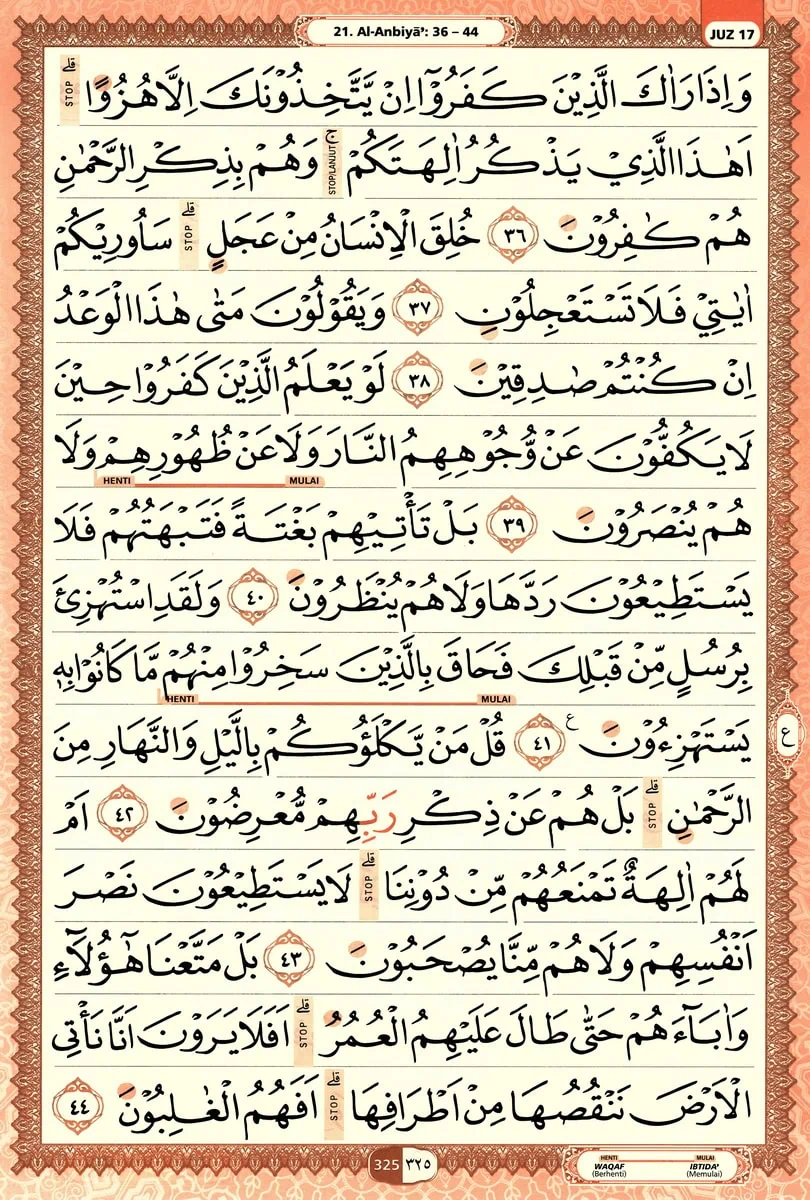 21. Al-Anbiyā': 36 – 44
JUZ 17
وَاِذَا رَاٰكَ الَّذِيْنَ كَفَرُوْٓا اِنْ يَّتَّخِذُوْنَكَ اِلَّا هُزُوًا ۗ STOP
اَهٰذَا الَّذِيْ يَذْكُرُ اٰلِهَتَكُمْ ۚ STOP/LANJUT وَهُمْ بِذِكْرِ الرَّحْمٰنِ
هُمْ كٰفِرُوْنَ ٣٦ خُلِقَ الْاِنْسَانُ مِنْ عَجَلٍ ۗ STOP سَاُورِيْكُمْ
اٰيٰتِيْ فَلَا تَسْتَعْجِلُوْنِ ٣٧ وَيَقُوْلُوْنَ مَتٰى هٰذَا الْوَعْدُ
اِنْ كُنْتُمْ صٰدِقِيْنَ ٣٨ لَوْ يَعْلَمُ الَّذِيْنَ كَفَرُوْا حِيْنَ
لَا يَكُفُّوْنَ عَنْ وُّجُوْهِهِمُ النَّارَ وَلَا عَنْ ظُهُوْرِهِمْ وَلَا
HENTI MULAI
هُمْ يُنْصَرُوْنَ ٣٩ بَلْ تَأْتِيْهِمْ بَغْتَةً فَتَبْهَتُهُمْ فَلَا
يَسْتَطِيْعُوْنَ رَدَّهَا وَلَا هُمْ يُنْظَرُوْنَ ٤٠ وَلَقَدِ اسْتُهْزِئَ
بِرُسُلٍ مِّنْ قَبْلِكَ فَحَاقَ بِالَّذِيْنَ سَخِرُوْا مِنْهُمْ مَّا كَانُوْا بِهٖ
HENTI MULAI
يَسْتَهْزِءُوْنَ ع ٤١ قُلْ مَنْ يَّكْلَؤُكُمْ بِالَّيْلِ وَالنَّهَارِ مِنَ
ع
الرَّحْمٰنِ ۗ STOP بَلْ هُمْ عَنْ ذِكْرِ رَبِّهِمْ مُّعْرِضُوْنَ ٤٢ اَمْ
لَهُمْ اٰلِهَةٌ تَمْنَعُهُمْ مِّنْ دُوْنِنَا ۗ STOP لَا يَسْتَطِيْعُوْنَ نَصْرَ
اَنْفُسِهِمْ وَلَا هُمْ مِّنَّا يُصْحَبُوْنَ ٤٣ بَلْ مَتَّعْنَا هٰٓؤُلَاۤءِ
وَاٰبَاۤءَهُمْ حَتّٰى طَالَ عَلَيْهِمُ الْعُمُرُ ۗ STOP اَفَلَا يَرَوْنَ اَنَّا نَأْتِى
الْاَرْضَ نَنْقُصُهَا مِنْ اَطْرَافِهَا ۗ STOP اَفَهُمُ الْغٰلِبُوْنَ ٤٤
325 ٣٢٥
HENTI MULAI
WAQAF IBTIDA'
(Berhenti) (Memulai)